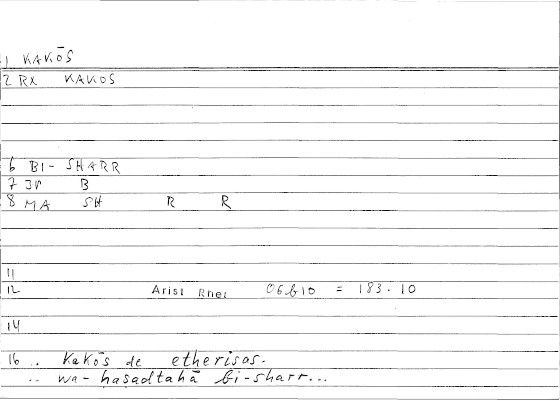 1 KAKŌS
2 RX KAKOS
6 BI-SHARR
7 JP B
8 MA SH R R
11
12 Arist Rhet 06b10 = 183.10
14
16 .. kakōs de etherisas.
.. wa-ḥasadtahā bi-sharr...